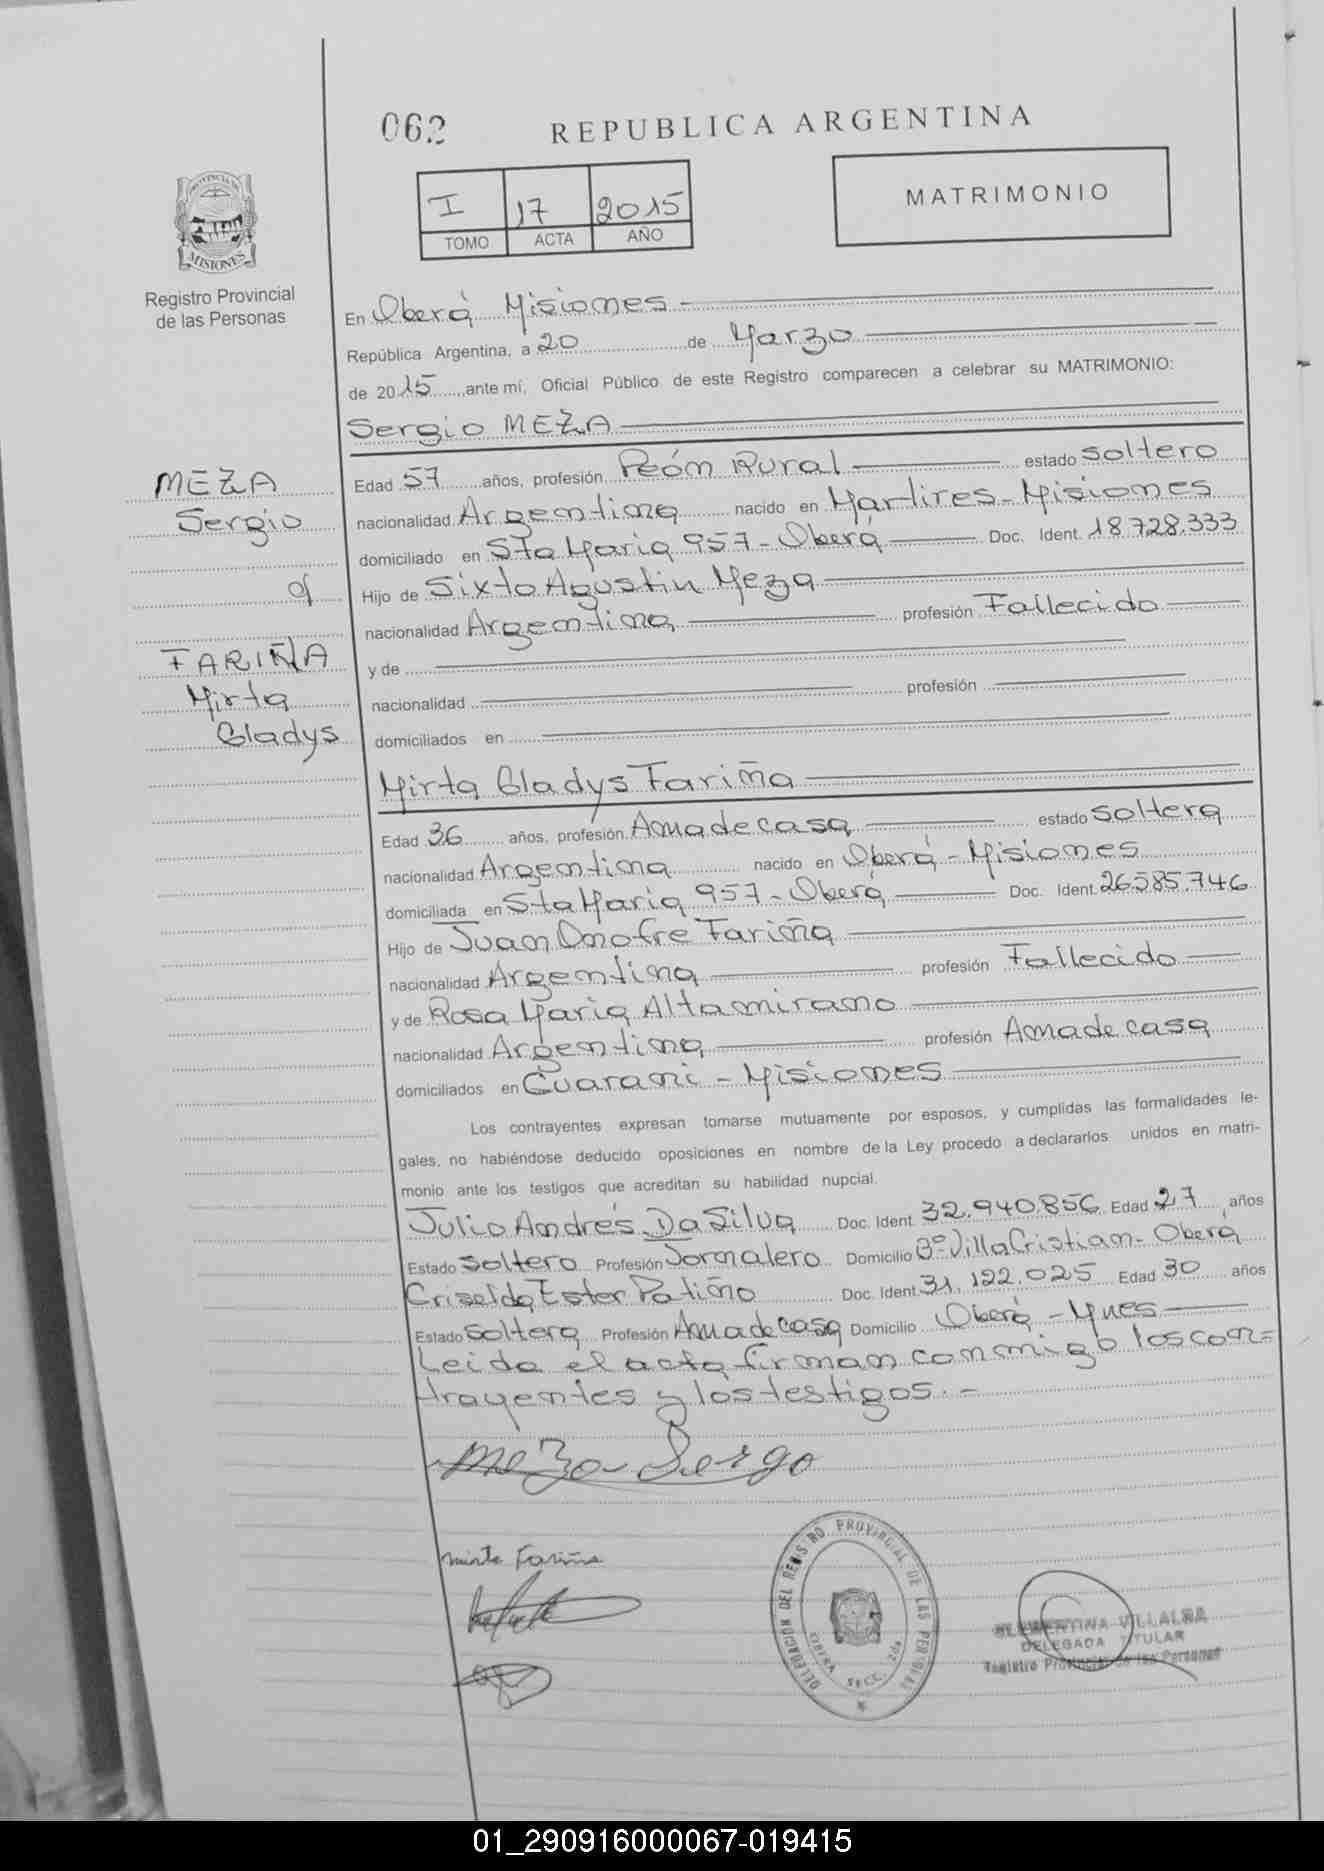 062
REPUBLICA ARGENTINA
PROVINCIA DE
MISIONES
Registro Provincial
de las Personas
I 17 2015
TOMO ACTA AÑO
MATRIMONIO
En Oberá Misiones
República Argentina, a 20 de Marzo
de 2015 ante mí, Oficial Público de este Registro comparecen a celebrar su MATRIMONIO:
Sergio MEZA
MEZA
Sergio
c/
FARIÑA
Mirta
Gladys
Edad 57 años, profesión Peón Rural estado soltero
nacionalidad Argentina nacido en Martires - Misiones
domiciliado en Sta Maria 957 - Oberá Doc. Ident. 18.728.333
Hijo de Sixto Agustin Meza
nacionalidad Argentina profesión Fallecido
y de
nacionalidad profesión
domiciliados en
Mirta Gladys Fariña
Edad 36 años, profesión Ama de casa estado soltera
nacionalidad Argentina nacido en Oberá - Misiones
domiciliada en Sta Maria 957 - Oberá Doc. Ident. 26.585.746
Hijo de Juan Onofre Fariña
nacionalidad Argentina profesión Fallecido
y de Rosa Maria Altamirano
nacionalidad Argentina profesión Ama de casa
domiciliados en Guarani - Misiones
Los contrayentes expresan tomarse mutuamente por esposos, y cumplidas las formalidades le-
gales, no habiéndose deducido oposiciones en nombre de la Ley procedo a declararlos unidos en matri-
monio ante los testigos que acreditan su habilidad nupcial.
Julio Andrés Da Silva Doc. Ident. 32.940.856 Edad 27 años
Estado soltero Profesión Jornalero Domicilio Bº Villa Cristian - Oberá
Griselda Ester Patiño Doc. Ident. 31.122.025 Edad 30 años
Estado soltera Profesión Ama de casa Domicilio Oberá - Mnes
Leida el acta firman conmigo los con=
trayentes y los testigos. -
Meza Sergo
mirta Fariña
DELEGACION DEL REGISTRO PROVINCIAL DE LAS PERSONAS
SECC. 2da
CLEMENTINA VILLALBA
DELEGADA TITULAR
Registro Provincial de las Personas
01_290916000067-019415